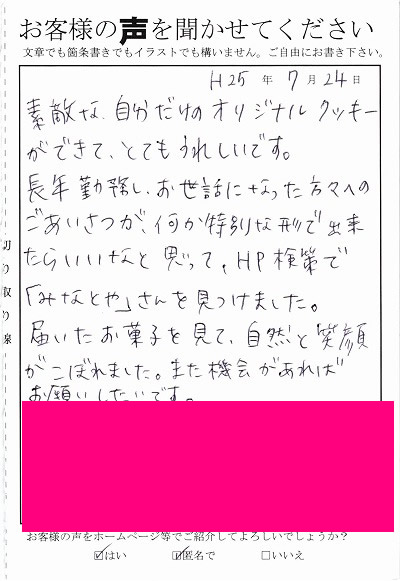 お客様の声を聞かせてください
文章でも箇条書きでもイラストでも構いません。ご自由にお書き下さい。
H25年7月24日
素敵な、自分だけのオリジナルクッキー
ができて、とてもうれしいです。
長年勤務し、お世話になった方々への
ごあいさつが、何か特別な形で出来
たらいいなと思って、HP検策で
「みなとや」さんを見つけました。
届いたお菓子を見て、自然と笑顔
がこぼれました。また機会があれば
お願いしたいです。
切り取り線
お客様の声をホームページ等でご紹介してよろしいでしょうか？
☑はい ☑匿名で □いいえ